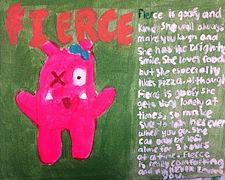 FIERCE
Fierce is goofy and
kind. She will always
make you laugh and
She has the brightest
Smile. She loves food
but she especially
likes pizza. Although
Fierce is goofy she
gets very lonely at
times, so make
sure to take her ever
when you go. She
can only be left
alone for 3 hours
at a time. Fierce
is really comforting
and will NEVER
you